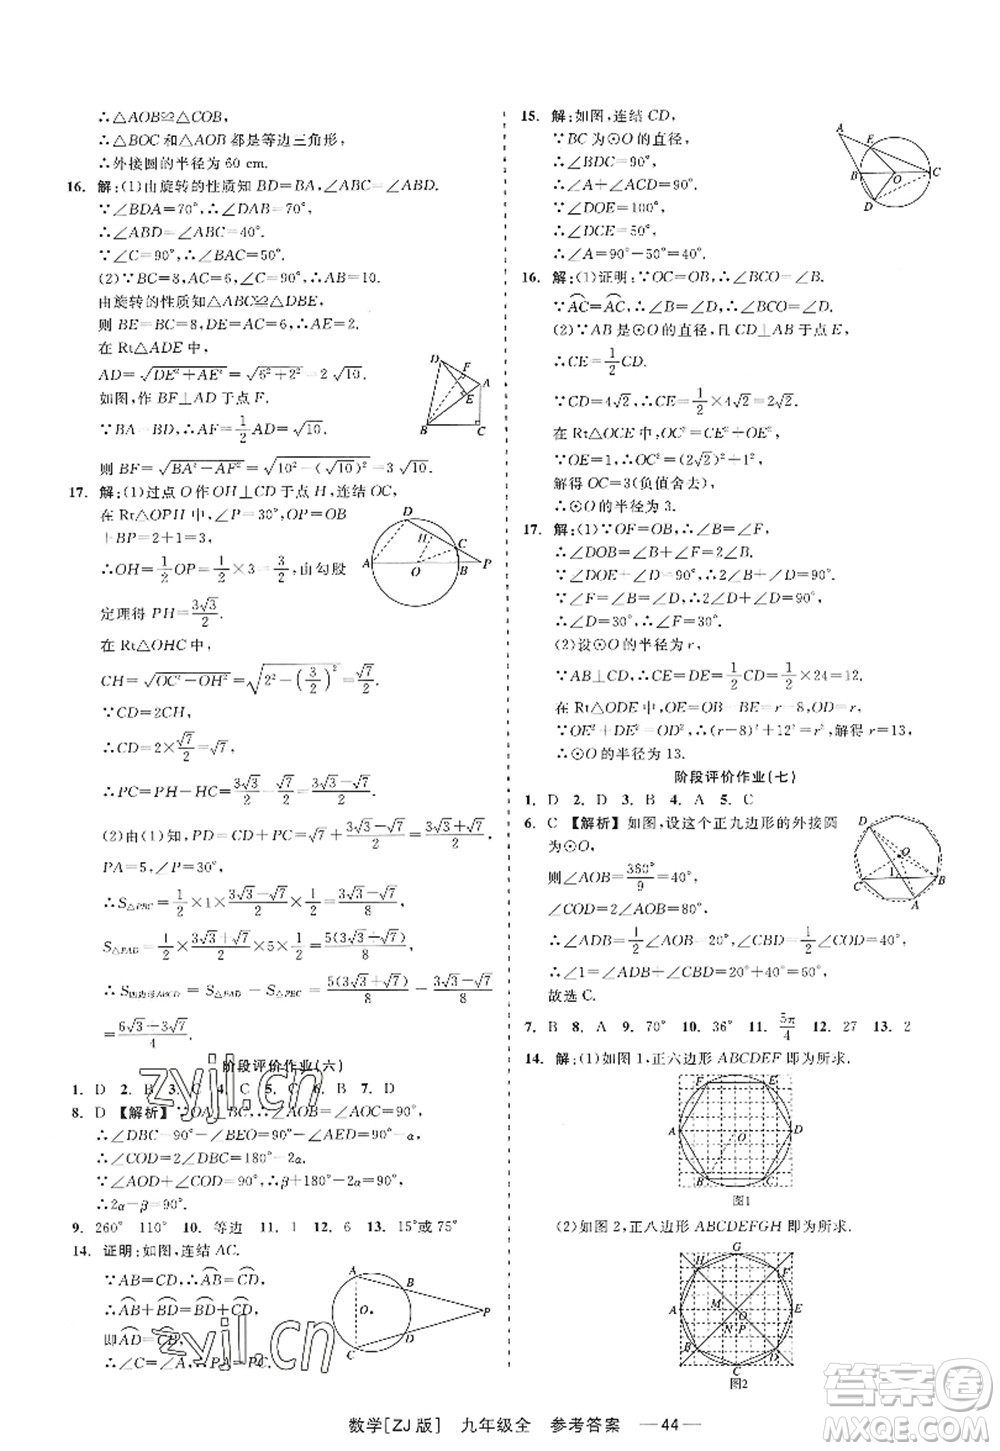 ∴△AOB≌△COB.
∴△BOC和△AOB都是等边三角形,
∴外接圆的半径为60 cm.
16. 解:(1)由旋转的性质知BD=BA,
∵∠BDA=70°,∴∠DAB=70°,
∴∠ABD=∠ABC=40°.
∵∠C=90°,∴∠BAC=50°.
(2)∵BC=8,AC=6,∠C=90°,∴AB=10.
由旋转的性质知△ABC≌△DBE,
则BE=BC=8,DE=AC=6,∴AE=2.
在Rt△ADE中,
AD=√(DE²+AE²)=√(6²+2²)=2√10.
如图,作BF⊥AD于点F.
∵BA=BD,∴AF=1/2 AD=√10.
则BF=√(BA²-AF²)=√(10²-(√10)²)=3√10.
17. 解:(1)过点O作OH⊥CD于点H,连结OC,
在Rt△OPH中,∠P=30°,OP=OB
+BP=2+1=3,
∴OH=1/2 OP=1/2×3=3/2.由勾股
定理得PH=3√3/2.
在Rt△OHC中,
CH=√(OC²-OH²)=√(2²-(3/2)²)=√7/2.
∵CD=2CH,
∴CD=2×√7/2=√7,
∴PC=PH-CH=3√3/2-√7/2=(3√3-√7)/2.
(2)由(1)知,PD=CD+PC=√7+(3√3-√7)/2=(3√3+√7)/2,
PA=5,∠P=30°.
∴S△PBC=1/2×1×(3√3-√7)/2×1/2=(3√3-√7)/8,
S△PAD=1/2×(3√3+√7)/2×5×1/2=5(3√3+√7)/8,
∴S四边形ABCD=S△PAD-S△PBC=5(3√3+√7)/8-(3√3-√7)/8
=(6√3+3√7)/4.
阶段评价作业(六)
1. D 2. B 3. C 4. C 5. C 6. B 7. D
8. D 【解析】∵OA⊥BC,∠AED=α,
∴∠DBC=90°-∠BEO=90°-∠AED=90°-α,
∴∠COD=2∠DBC=180°-2α.
∵∠AOD+∠COD=90°,∴β+180°-2α=90°,
∴2α-β=90°.
9. 260° 110° 10. 等边 11. 1 12. 6 13. 15°或75°
14. 证明:如图,连结AC.
∵AB=CD,∴AB=CD,
∴AB+BD=CD+BD,
即AD=CB,
∴∠C=∠A,∴PA=PC.
15. 解:如图,连结CD,
∵BC为⊙O的直径,
∴∠BDC=90°,
∴∠A+∠ACD=90°.
∵∠DOE=100°,
∴∠DCE=50°,
∴∠A=90°-50°=40°.
16. 解:(1)证明:∵OC=OB,∴∠BCO=∠B.
∵AC=AC,∴∠B=∠D,∴∠BCO=∠D.
(2)∵AB是⊙O的直径,且CD⊥AB于点E,
∴CE=1/2 CD.
∵CD=4√2,∴CE=1/2×4√2=2√2.
在Rt△OCE中,OC²=CE²+OE²,
∵OE=1,∴OC²=(2√2)²+1²,
解得OC=3(负值舍去),
∴⊙O的半径为3.
17. 解:(1)∵OF=OB,∴∠B=∠F,
∴∠DOB=∠B+∠F=2∠B.
∵∠DOE+∠D=90°,∴2∠B+∠D=90°.
∵∠F=∠B=∠D,∴2∠D+∠D=90°,
∴∠D=30°.
(2)设⊙O的半径为r,
∵AB⊥CD,∴CE=DE=1/2 CD=1/2×24=12.
在Rt△ODE中,OE=OB-BE=r-8,OD=r,
∵OE²+DE²=OD²,∴(r-8)²+12²=r²,解得r=13,
∴⊙O的半径为13.
阶段评价作业(七)
1. D 2. D 3. B 4. A 5. C
6. C 【解析】如图,设这个正九边形的外接圆
为⊙O,
则∠AOB=360°/9=40°,
∠COD=2∠AOB=80°,
∴∠ADB=1/2∠AOB=20°,∠CBD=1/2∠COD=40°,
∴∠1=∠ADB+∠CBD=20°+40°=60°,
故选C.
7. B 8. A 9. 70° 10. 36° 11. 5π/4 12. 27 13. 2
14. 解:(1)如图1,正六边形ABCDEF即为所求.
图1
(2)如图2,正八边形ABCDEFGH即为所求.
图2
数学[ZJ版] 九年级全 参考答案 —44—
zyjl.cn
zyjl.cn
答案圈
MXQE.COM